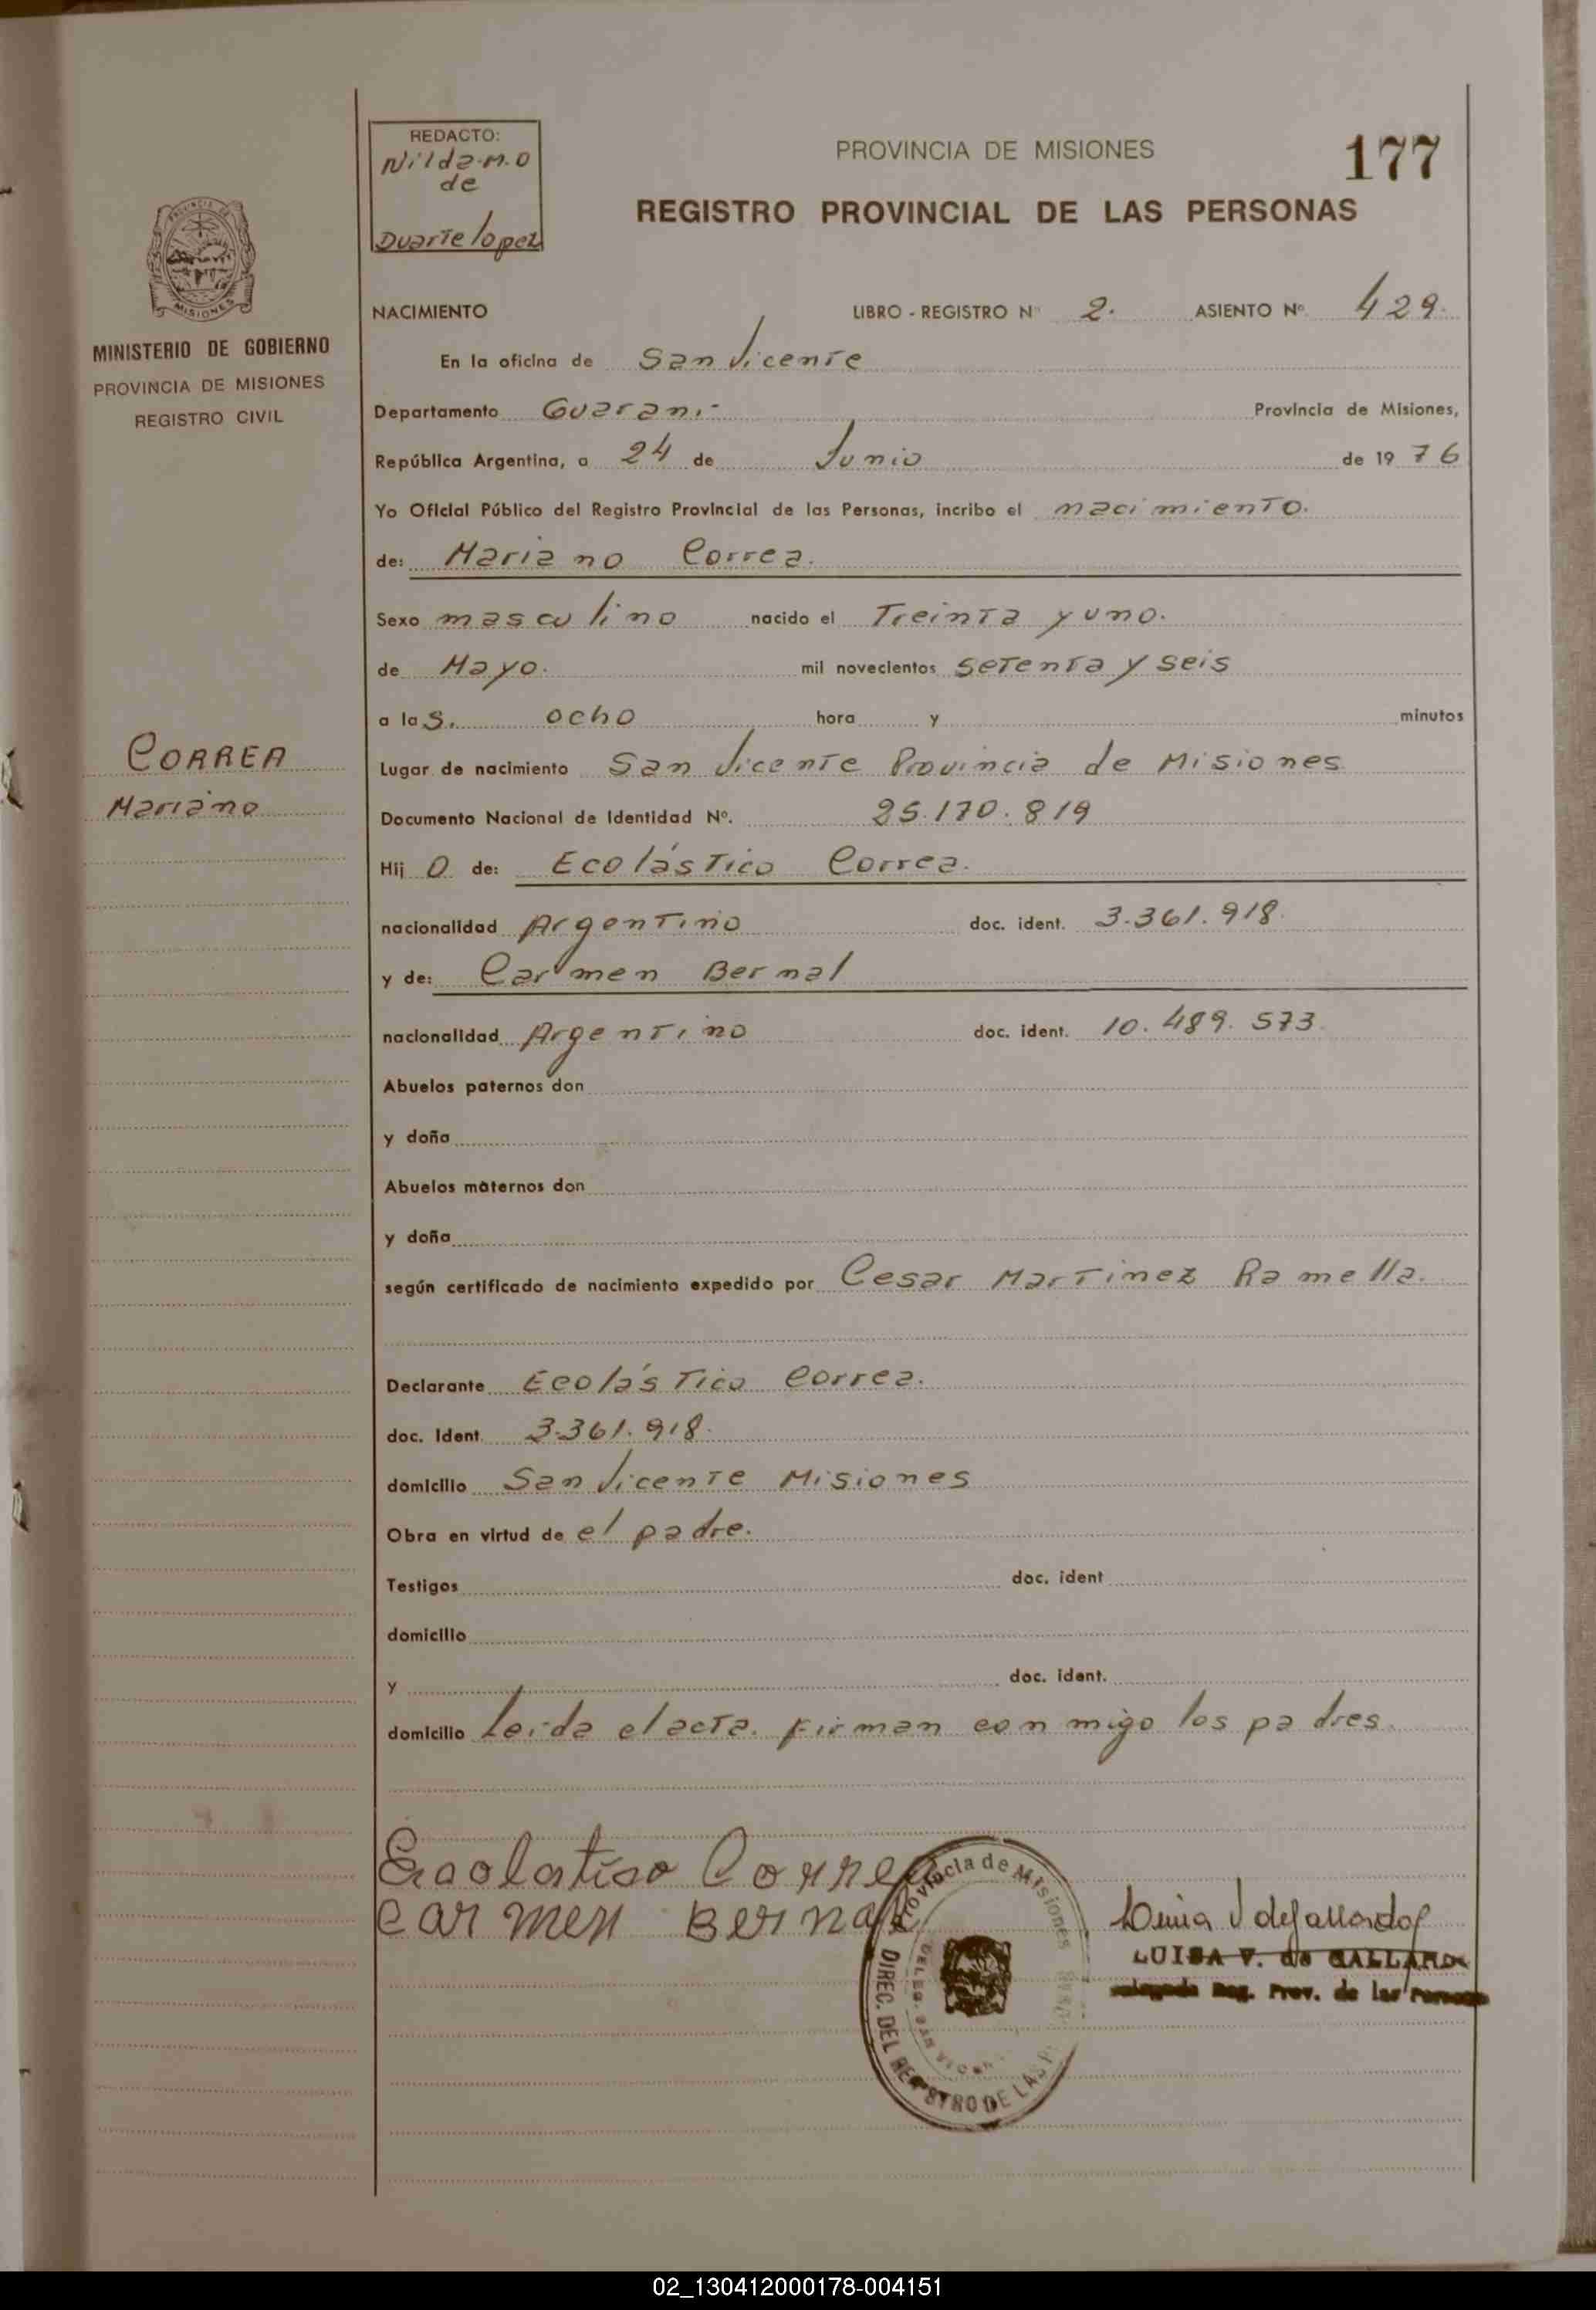 REDACTO:
Nilda.M.O
de
Duarte lopez
PROVINCIA DE MISIONES
177
REGISTRO PROVINCIAL DE LAS PERSONAS
MISIONES
MINISTERIO DE GOBIERNO
PROVINCIA DE MISIONES
REGISTRO CIVIL
CORREA
Mariano
NACIMIENTO LIBRO - REGISTRO Nº 2. ASIENTO Nº. 429.
En la oficina de San Vicente
Departamento Guarani Provincia de Misiones,
República Argentina, a 24 de Junio de 19 76
Yo Oficial Público del Registro Provincial de las Personas, incribo el nacimiento.
de: Mariano Correa.
Sexo masculino nacido el Treinta y uno.
de Mayo. mil novecientos setenta y seis
a las. ocho hora y minutos
Lugar de nacimiento San Vicente Provincia de Misiones
Documento Nacional de Identidad Nº. 25.170.819
Hij O de: Ecolástico Correa.
nacionalidad Argentino doc. ident. 3.361.918.
y de: Carmen Bernal
nacionalidad Argentino doc. ident. 10.489.573.
Abuelos paternos don
y doña
Abuelos maternos don
y doña
según certificado de nacimiento expedido por Cesar Martinez Ramella.
Declarante Ecolástico Correa.
doc. Ident. 3.361.918.
domicilio San Vicente Misiones
Obra en virtud de el padre.
Testigos doc. ident
domicilio
y doc. ident.
domicilio Leida el acta. firman conmigo los padres.
Ecolatico Correa
Carmen Bernal
Provincia de Misiones
DIREC. DEL REGISTRO DE LAS P.
Luisa V de Gallardo
LUISA V. de GALLARDO
Reg. Prov. de las Personas
02_130412000178-004151